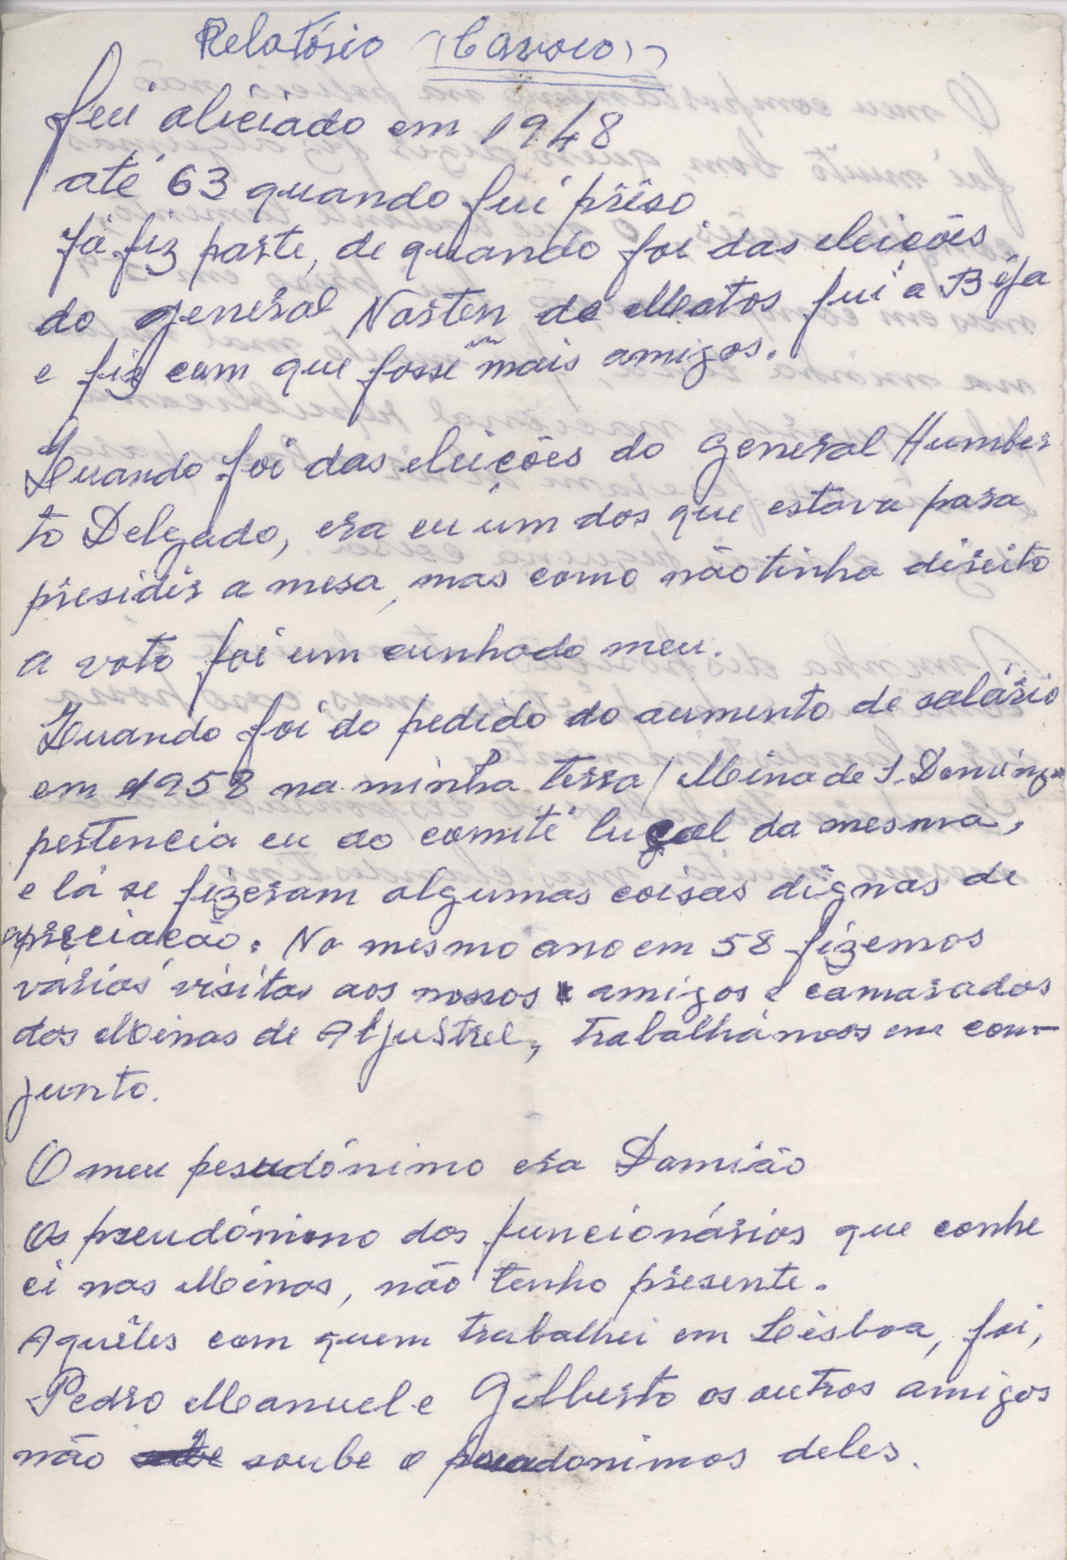 Relatório (Carocо)
fui aliciado em 1948
até 63 quando fui prêso
Já fiz parte, de quando foi das eleições
do general Norten de Matos fui a Beja
e fiz com que fosse mais amigos.
Quando foi das eleições do general Humber
to Delgado, era eu um dos que estava para
presidir a mesa, mas como não tinha direito
a voto foi um cunhado meu.
Quando foi do pedido do aumento de salário
em 1958 na minha terra / Mina de S. Domingos
pertencia eu ao comité luçal da mesma,
e lá se fizeram algumas coisas dignas de
apreciação. No mesmo ano em 58 fizemos
várias visitas aos nossos amigos e camaradas
das Minas de Aljustrel, trabalhámos em con-
junto.
O meu pesudónimo era Damião
Os pseudónimo dos funcionários que conhe
ci nas Minas, não tenho presente.
Aquêles com quem trabalhei em Lisboa, foi,
Pedro Manuel e Gilberto os outros amigos
não soube o pseudonimos deles.